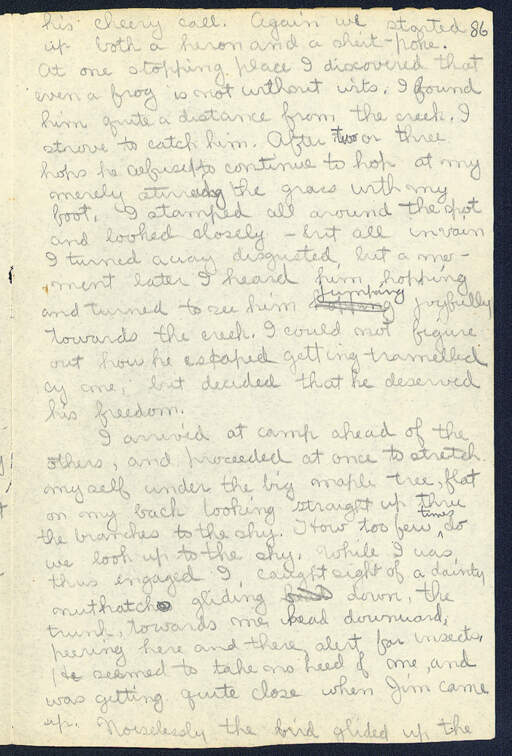 his cheery call. Again we started 86
up both a heron and a sheit-poke.
At one stopping place I discovered that
even a frog is not without wits. I found
him quite a distance from the creek. I
strove to catch him. After two or three
hops he refused to continue to hop at my
merely stirring the grass with my
foot. I stamped all around the spot
and looked closely - but all in vain
I turned away disgusted, but a mo-
ment later I heard him hopping
and turned to see him jumping joyfully
towards the creek. I could not figure
out how he escaped getting tramelled
by me, but decided that he deserved
his freedom.
I arrived at camp ahead of the
others, and proceeded at once to stretch
myself under the big maple tree, flat
on my back looking straight up thru
the branches to the sky. How too few times do
we look up to the sky. While I was
thus engaged I caught sight of a dainty
nuthatch gliding down, the
trunk, towards me, head downward,
peering here and there, alert for insects.
He seemed to take no heed of me, and
was getting quite close when Jim came
up. Noiselessly the bird glided up the